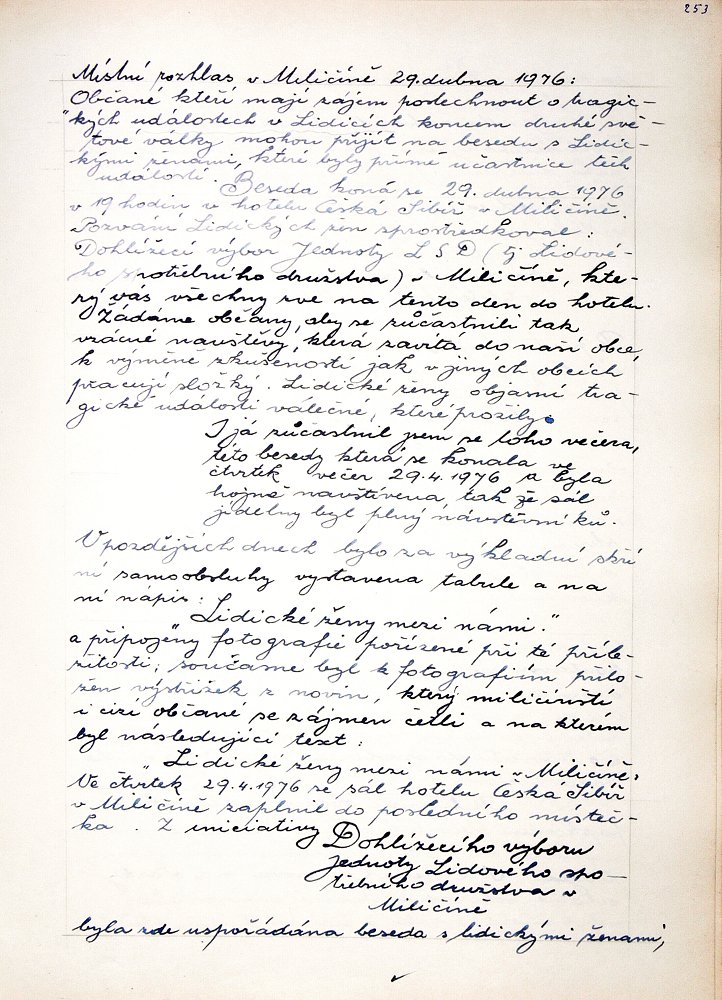 253
Místní rozhlas v Miličíně 29.dubna 1976:
Občané kteří mají zájem poslechnout o tragic-
"kých událostech v Lidicích koncem druhé svě-
tové války mohou přijít na besedu s Lidic-
kými ženami, které byly přímé učastnice těch
událostí. Beseda koná se 29. dubna 1976
v 19 hodin v hotelu Česká Sibiř v Miličíně.
Pozvání Lidických žen zprostředkoval:
Dohlížecí výbor Jednoty LSD (tj Lidové-
ho spotřebního družstva) v Miličíně, kte-
rý vás všechny zve na tento den do hotelu.
Žádáme občany, aby se zůčastnili tak
vzácné navštěvy, která zavítá do naší obce,
k výměně zkušeností jak v jiných obcích
pracují složky. Lidické ženy objasní tra-
gické události válečné, které prožily.
I já zůčastnil jsem se toho večera,
této besedy která se konala ve
čtvrtek večer 29.4.1976 a byla
hojně navštívena, tak že sál
jídelny byl plný návštěvníků.
V pozdějších dnech bylo za výkladní skří
ní samoobsluhy vystavena tabule a na
ní nápis:
"Lidické ženy mezi námi."
a připojeny fotografie pořízené při té příle-
žitosti; současne byl k fotografiím přilo-
žen výstřižek z novin, který miličínští
i cizí občané se zájmem četli a na kterém
byl následující text:
"Lidické ženy mezi námi v Miličíně,
Ve čtvrtek 29.4.1976 se sál hotelu Česká Sibiř
v Miličíně zaplnil do posledního místeč-
ka. Z iniciativy Dohlížecího výboru
Jednoty Lidového spo-
třebního družstva v
Miličíně
byla zde uspořádána beseda s lidickými ženami,